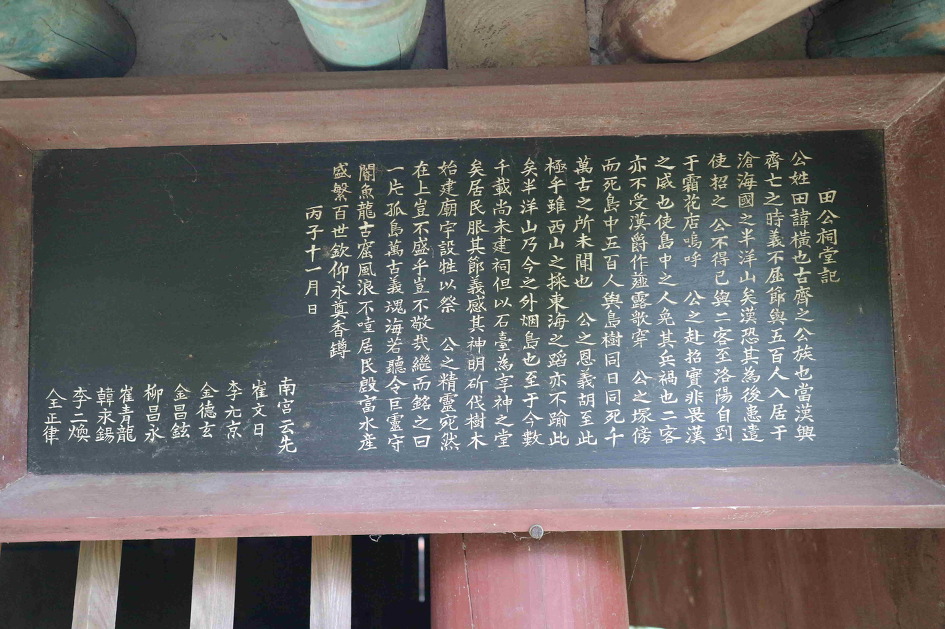 田公祠堂記
公姓田諱橫也古齊之公族也當漢興
齊亡之時義不屈節與五百人入居于
滄海國之半洋山矣漢恐其為後患遣
使招之公不得已與二客至洛陽自刭
于霜花店嗚呼 公之赴招實非畏漢
之威也使島中之人免其兵禍也二客
亦不受漢爵作薤露歌穿 公之塚傍
而死島中五百人與島樹同日同死千
萬古之所未聞也 公之恩義胡至此
極乎雖西山之採東海之蹈亦不踰此
矣半洋山乃今之外烟島也至于今數
千載尚未建祠但以石臺為享神之堂
矣居民服其節義感其神明斫伐樹木
始建廟宇設牲以祭 公之精靈宛然
在上豈不盛乎豈不敬哉繼而銘之曰
一片孤島萬古義塊海若聽令巨靈守
閽魚龍古窟風浪不喧居民殷富水産
盛繁百世欽仰永奠香罇
丙子十一月 日
南宮云先
崔文日
李元京
金德玄
金昌鉉
柳昌永
崔青龍
韓永錫
李二煥
全正律